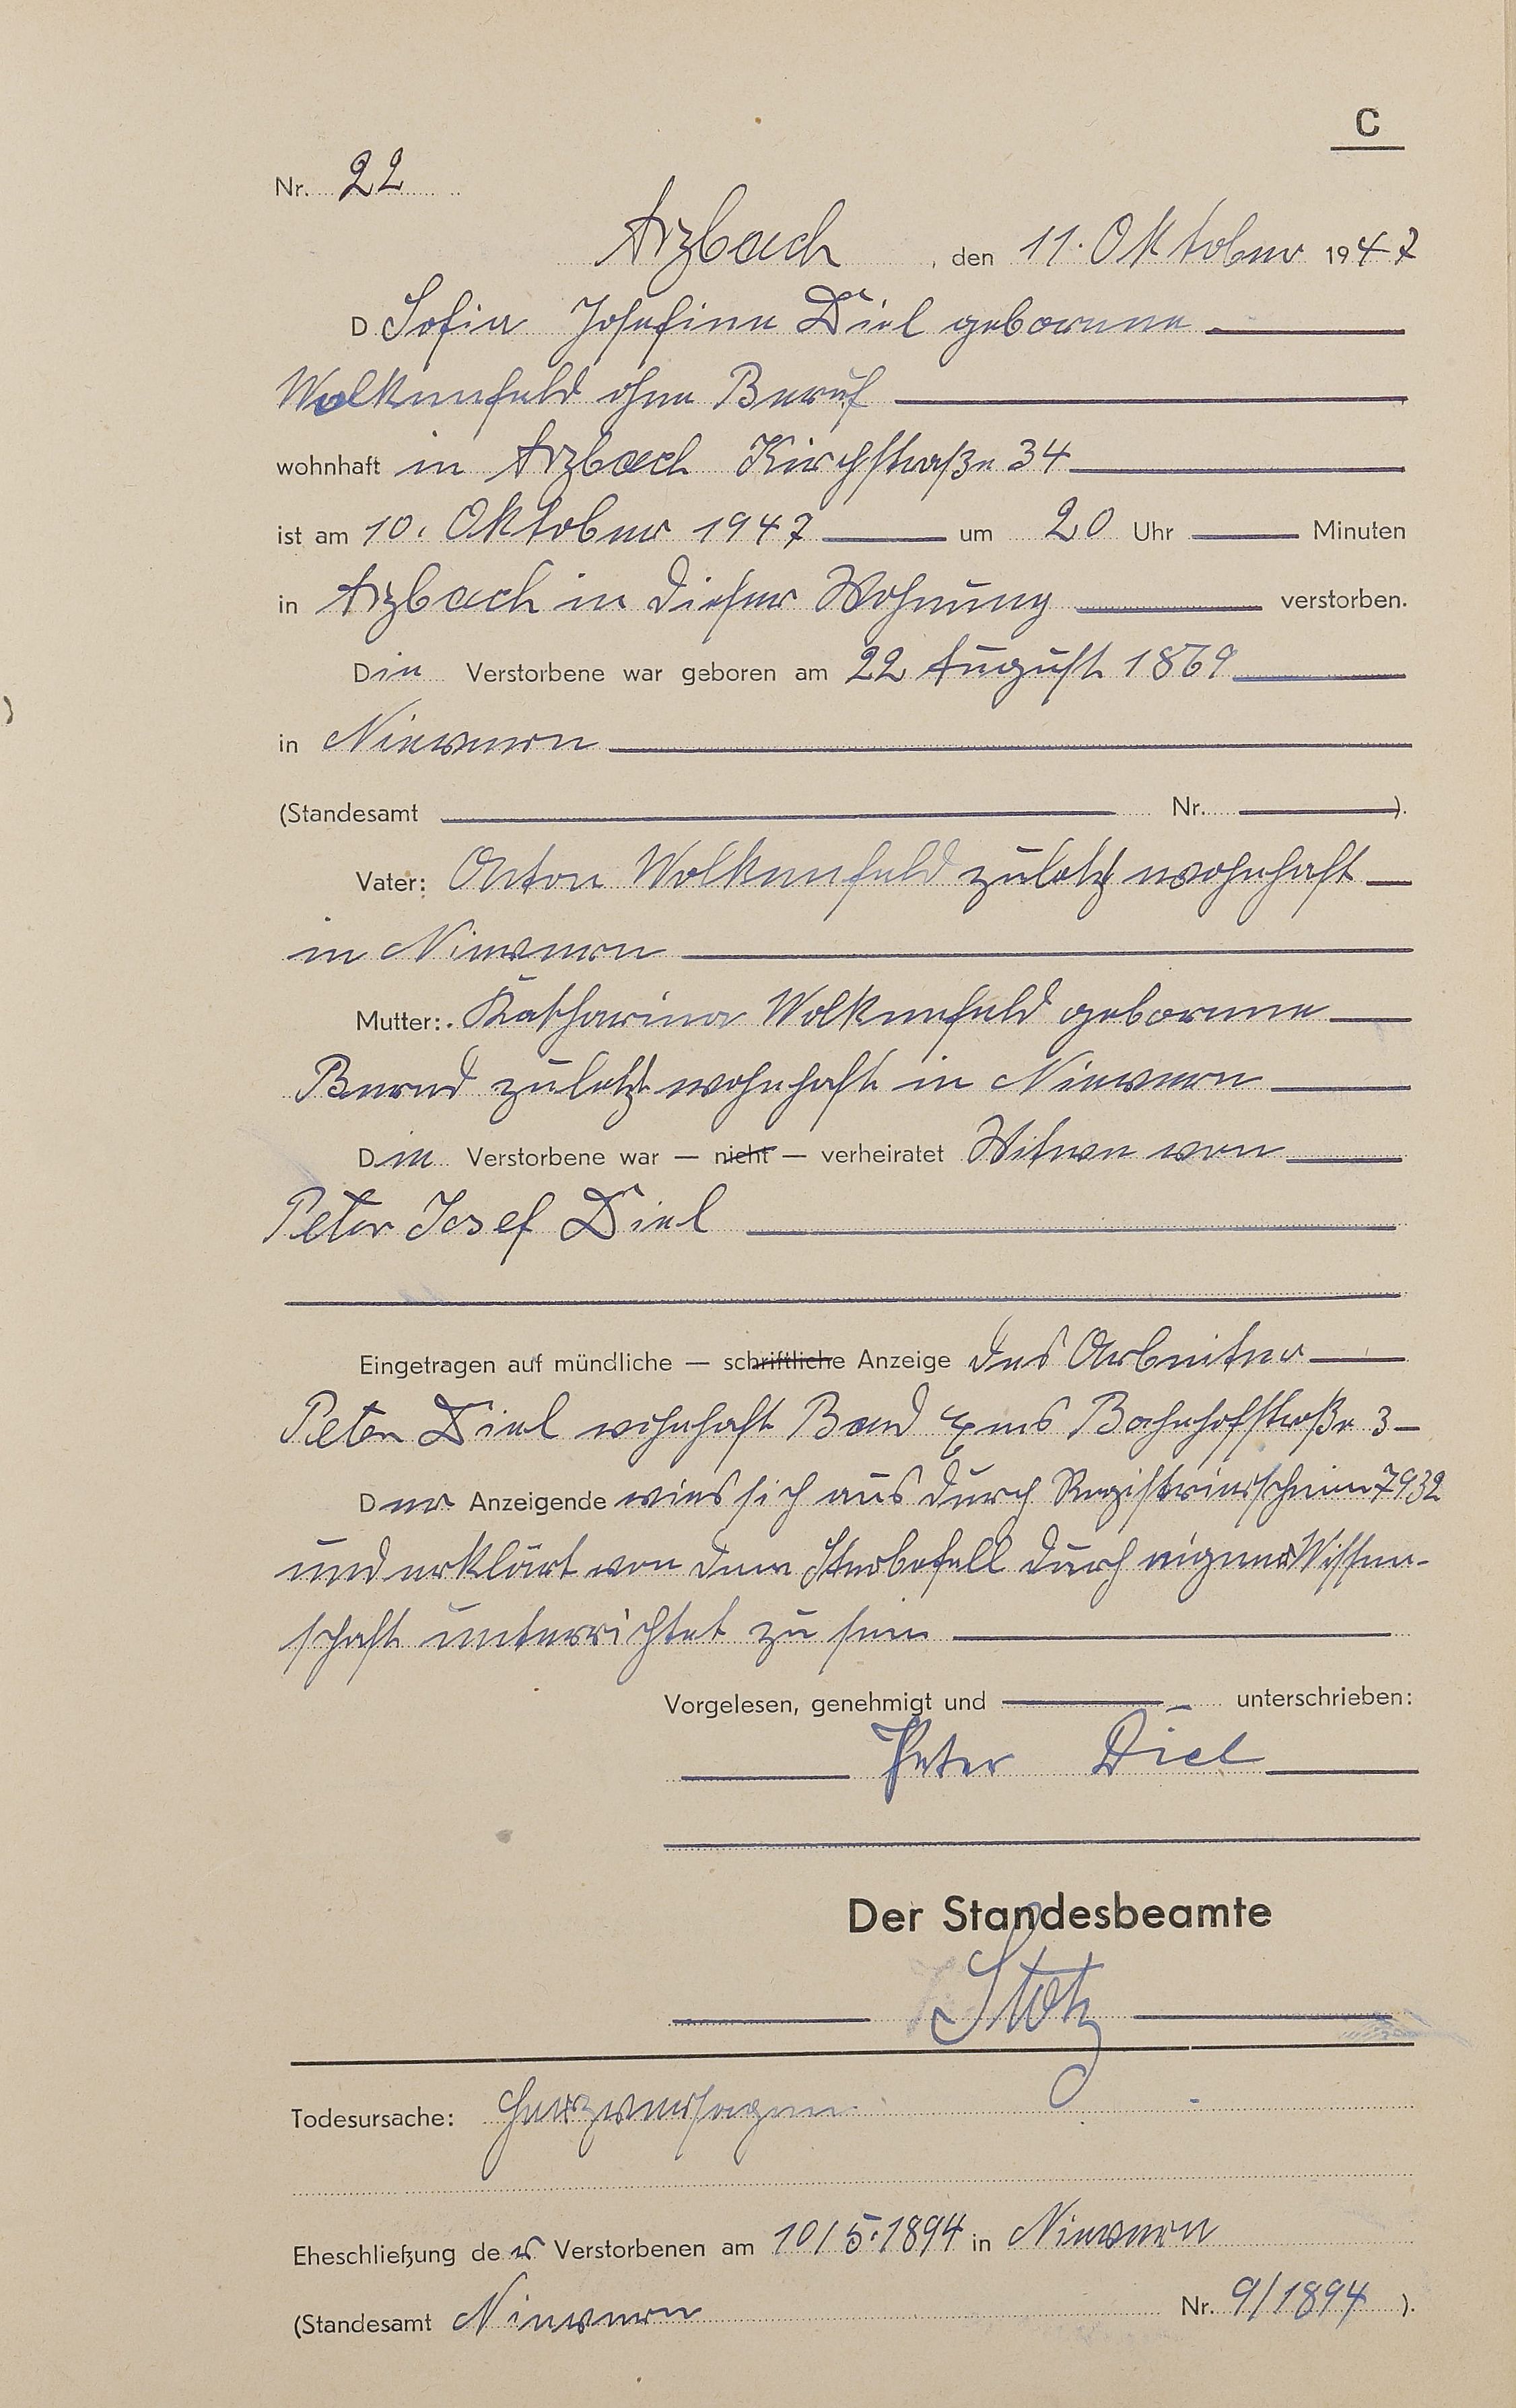 C
Nr. 22
Arzbach, den 11. Oktober 1947
D Sofia Josefine Diel geborene
Wolkenfeld ohne Beruf
wohnhaft in Arzbach Kirchstraße 34
ist am 10. Oktober 1947 um 20 Uhr Minuten
in Arzbach in dieser Wohnung verstorben.
Die Verstorbene war geboren am 22 August 1869
in Nievern
(Standesamt Nr. ).
Vater: Anton Wolkenfeld zuletzt wohnhaft
in Nievern
Mutter: Katharina Wolkenfeld geborene
Bernd zuletzt wohnhaft in Nievern
Die Verstorbene war — nicht — verheiratet Witwe von
Peter Josef Diel
Eingetragen auf mündliche — schriftliche Anzeige des Arbeiter
Peter Diel wohnhaft Bad Ems Bahnhofstraße 3
Der Anzeigende wies sich aus durch Registrierschein 7932
und erklärt von dem Sterbefall durch eigene Wissen-
schaft unterrichtet zu sein
Vorgelesen, genehmigt und unterschrieben:
Peter Diel
Der Standesbeamte
Stotz
Todesursache: Herzversagen
Eheschließung der Verstorbenen am 10/5.1894 in Nievern
(Standesamt Nievern Nr. 9/1894 ).